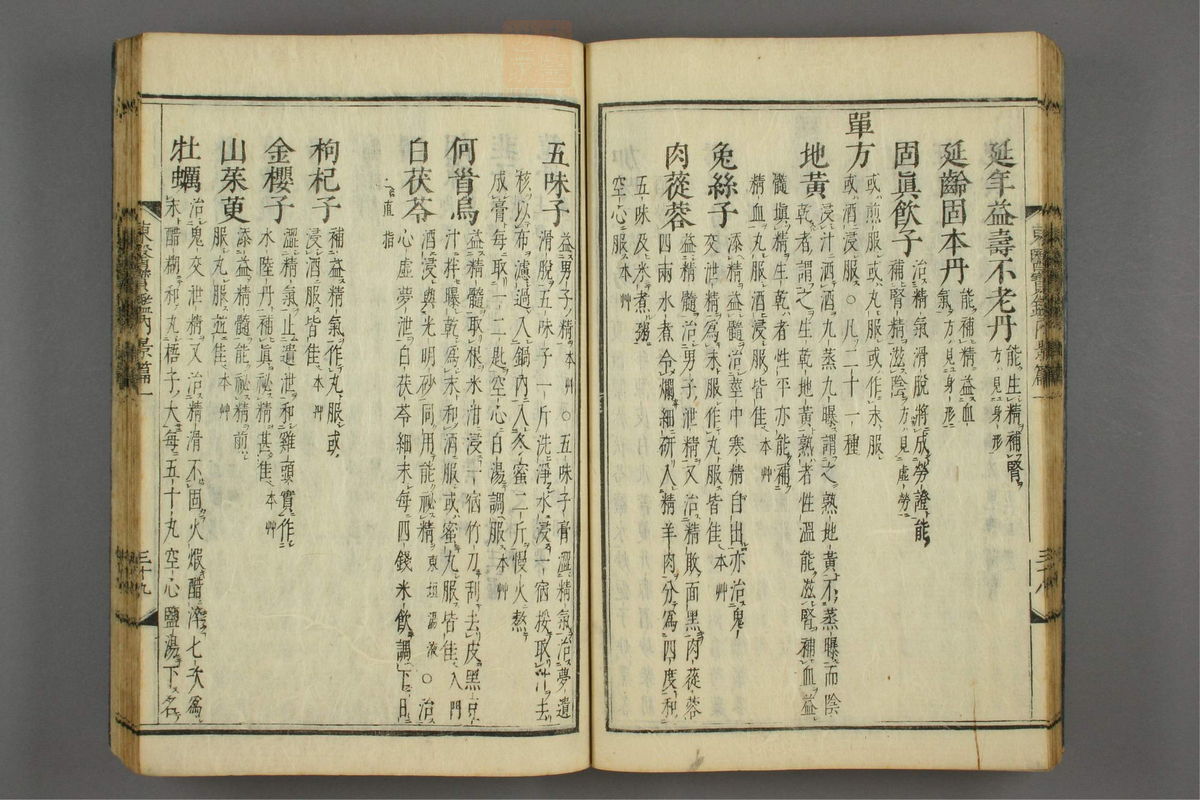 延年益壽不老丹 能生精補腎
方見身形
延齡固本丹 能補精益血
氣方見身形
固眞飲子 治精氣滑脫將成勞證能
補腎精滋陰方見虛勞
單方 或煎服或丸服或作末服
或酒浸服○凡二十一種
地黃 浸汁酒九蒸九曝謂之熟地黃不蒸曝而陰
乾者謂之生乾地黃熟者性溫能滋腎補血益
髓塡精生乾者性平亦能補
精血丸服酒浸服皆佳本艸
兔絲子 添精益髓治莖中寒精自出亦治鬼
交泄精爲末服作丸服皆佳本艸
肉蓯蓉 治男子泄精又治精敗面黑肉蓯蓉
四兩水煮令爛細硏入精羊肉分爲四度和
五味及米煮粥
空心服本艸
東醫寶鑑內景篇一
三十八
五味子 益男子精本艸○五味子膏澀精氣治夢遺
滑脫五味子一斤洗淨水浸一宿挼取汁去
核以布濾過入鍋內入冬蜜二斤慢火熬
成膏每取一二匙空心白湯調服本艸
何首烏 益精髓取根米泔浸一宿竹刀刮去皮黑豆
汁拌曝乾爲末和酒服或蜜丸服皆佳入門
白茯苓 酒浸與光明砂同用能祕精東垣湯液○治
心虛夢泄白茯苓細末每四錢米飲調下日
直指
枸杞子 補益精氣作丸服或
浸酒服皆佳本艸
金櫻子 澀精氣止遺泄和雞頭實作
水陸丹補眞祕精甚佳本艸
山茱萸 添益精髓能祕精煎
服丸服並佳本艸
牡蠣 治鬼交泄精又治精滑不固火煆醋淬七次爲
末醋糊和丸梧子大每五十丸空心鹽湯下名
東醫寶鑑內景篇一
三十九